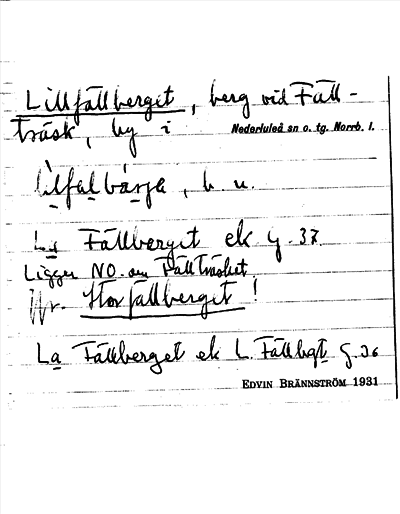 Lillfällberget, berg vid Fäll-
träsk, by i Nederluleå sn o. tg. Norrb. l.
lìlfalbárja, b. u.
La Fällberget ek G. 37
Ligger NO. om Fällträsket
Jfr. Storfällberget !
La Fällberget ek L. Fällbgt G. 36
EDVIN BRÄNNSTRÖM 1931